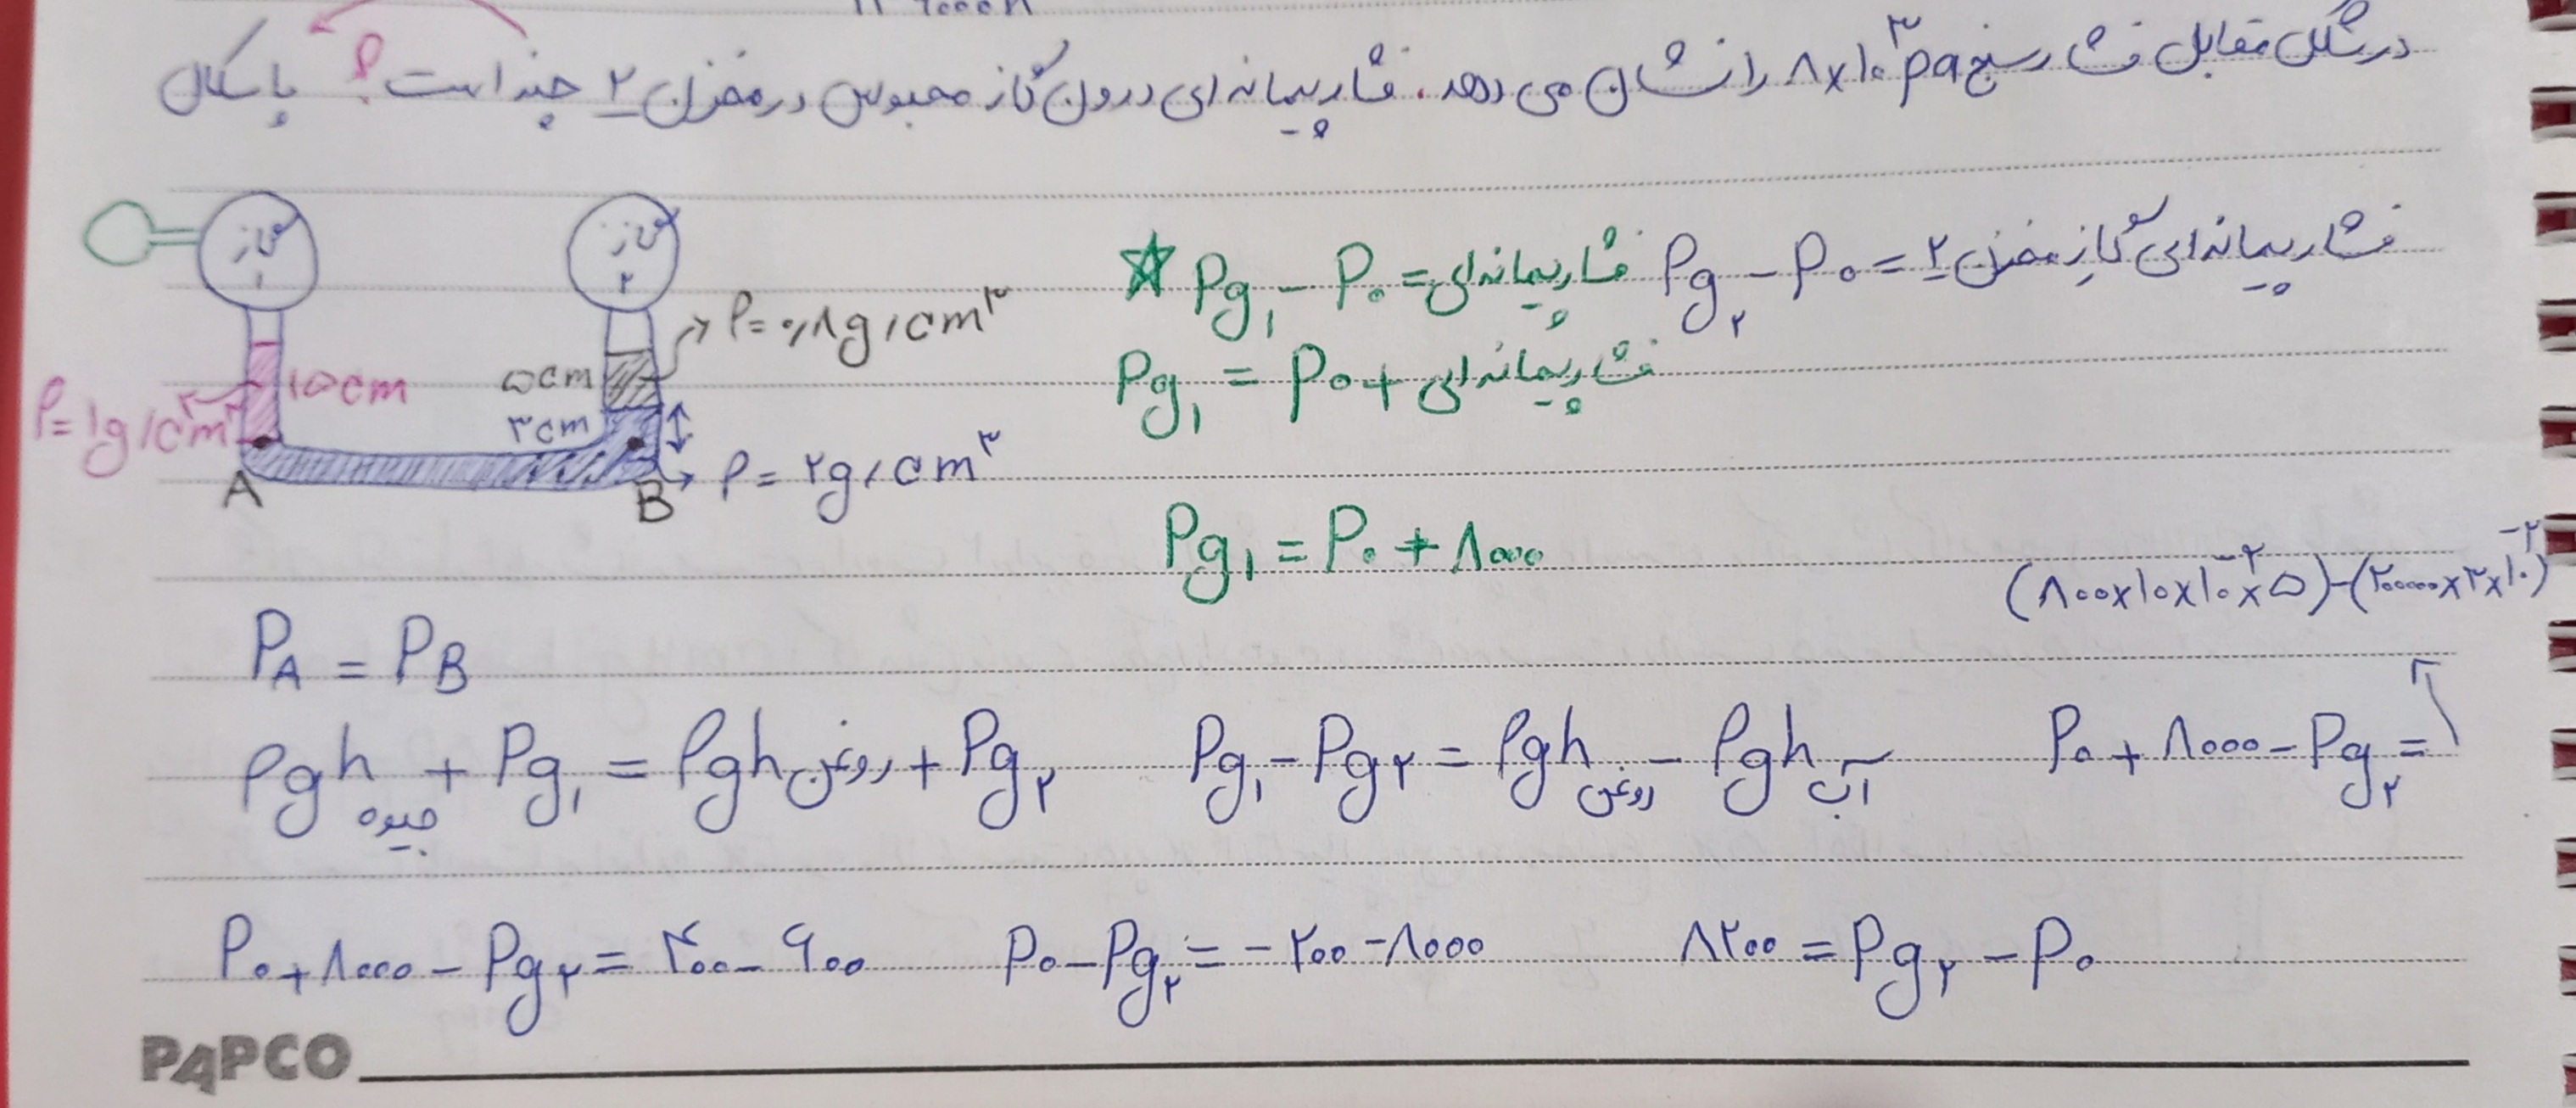 در شکل مقابل فشارسنج ۸×۱۰^۳ pa را نشان می دهد. فشار پیمانه ای درون گاز محبوس در مخزن ۲ چند است؟ پاسکال
گاز ۱
گاز ۲
ρ=۰/۸g/cm^۳
۵cm
۱۵cm
ρ=۱g/cm^۳
۳cm
A
B
ρ=۲g/cm^۳
Pg₁ - P₀ = فشار پیمانه ای
Pg₂ - P₀ = فشار پیمانه ای گاز مخزن ۲
Pg₁ = P₀ + فشار پیمانه ای
Pg₁ = P₀ + ۸۰۰۰
(۸۰۰×۱۰×۱۰^-۲×۵)-(۲۰۰۰۰×۳×۱۰^-۲)
P_A = P_B
ρgh جیوه + Pg₁ = ρgh روغن + Pg₂
Pg₁ - Pg₂ = ρgh روغن - ρgh آب
P₀ + ۸۰۰۰ - Pg₂ =
P₀ + ۸۰۰۰ - Pg₂ = ۴۰۰ - ۶۰۰
P₀ - Pg₂ = -۲۰۰ - ۸۰۰۰
۸۲۰۰ = Pg₂ - P₀
PAPCO